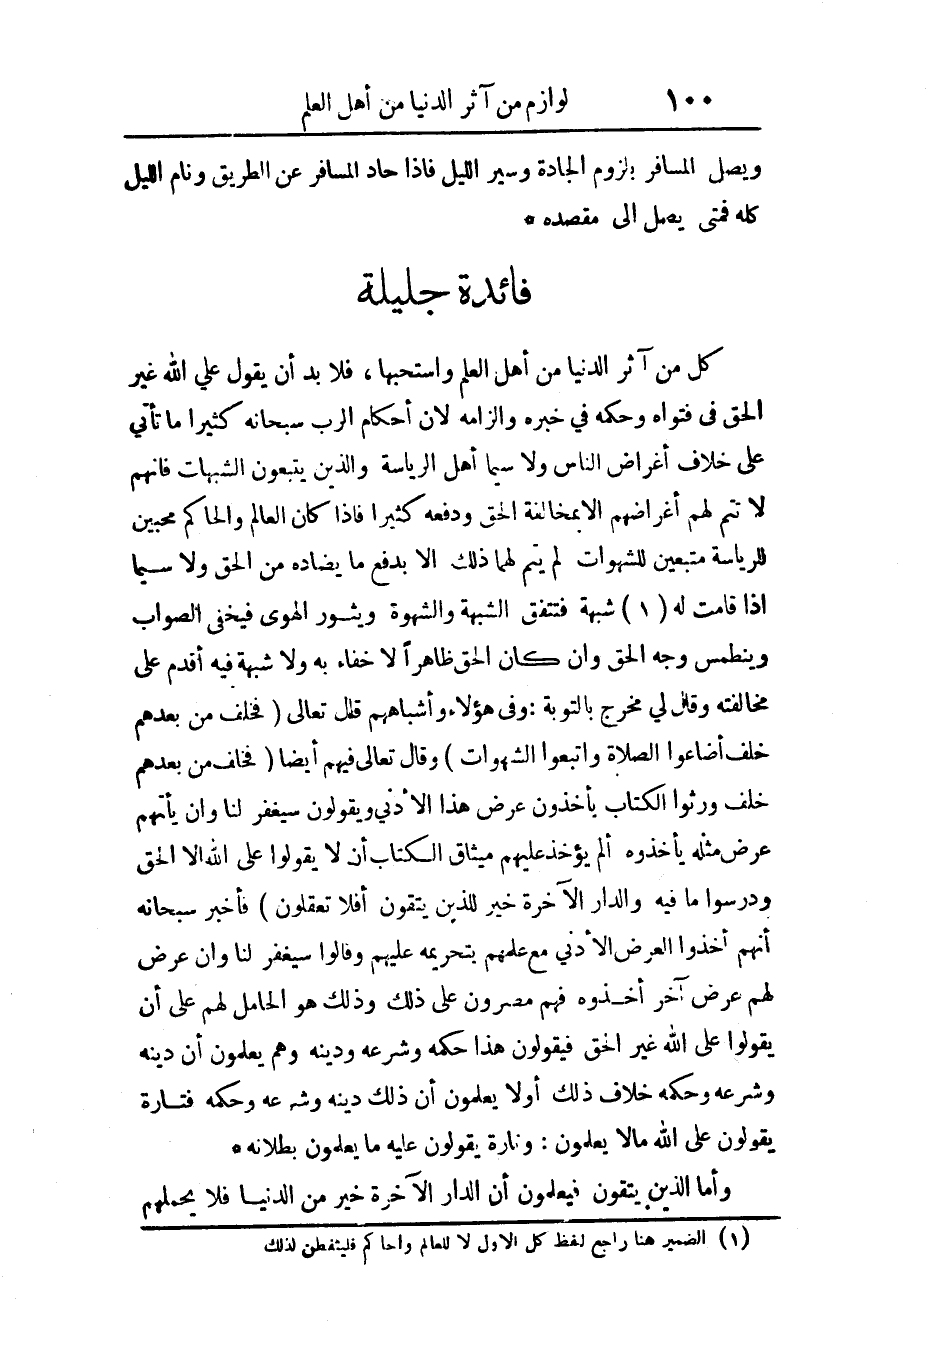 ١٠٠ لوازم من آثر الدنيا من أهل العلم
ويصل المسافر بلزوم الجادة وسير الليل فاذا حاد المسافر عن الطريق ونام الليل
كله فمتى يصل الى مقصده *
فائدة جليلة
كل من آثر الدنيا من أهل العلم واستحبها ، فلا بد أن يقول علي الله غير
الحق فى فتواه وحكمه في خبره والزامه لان أحكام الرب سبحانه كثيرا ما تأتي
على خلاف أغراض الناس ولا سيما أهل الرياسة والذين يتبعون الشبهات فانهم
لا تتم لهم أغراضهم الا بمخالفة الحق ودفعه كثيرا فاذا كان العالم والحاكم محبين
للرياسة متبعين للشهوات لم يتم لهما ذلك الا بدفع ما يضاده من الحق ولا سيما
اذا قامت له (١) شبهة فتتفق الشبهة والشهوة ويثور الهوى فيخفى الصواب
وينطمس وجه الحق وان كان الحق ظاهراً لا خفاء به ولا شبهة فيه أقدم على
مخالفته وقال لي مخرج بالتوبة : وفى هؤلاء وأشباههم قال تعالى ( فخلف من بعدهم
خلف أضاعوا الصلاة واتبعوا الشهوات ) وقال تعالى فيهم أيضا ( فخلف من بعدهم
خلف ورثوا الكتاب يأخذون عرض هذا الأدني ويقولون سيغفر لنا وان يأتهم
عرض مثله يأخذوه ألم يؤخذ عليهم ميثاق الكتاب أن لا يقولوا على الله الا الحق
ودرسوا ما فيه والدار الآخرة خير للذين يتقون أفلا تعقلون ) فأخبر سبحانه
أنهم أخذوا العرض الأدني مع علمهم بتحريمه عليهم وقالوا سيغفر لنا وان عرض
لهم عرض آخر أخذوه فهم مصرون على ذلك وذلك هو الحامل لهم على أن
يقولوا على الله غير الحق فيقولون هذا حكمه وشرعه ودينه وهم يعلمون أن دينه
وشرعه وحكمه خلاف ذلك أولا يعلمون أن ذلك دينه وشرعه وحكمه فتارة
يقولون على الله مالا يعلمون : وتارة يقولون عليه ما يعلمون بطلانه *
وأما الذين يتقون فيعلمون أن الدار الآخرة خير من الدنيا فلا يحملهم
(١) الضمير هنا راجع لفظ كل الاول لا للعالم والحاكم فليتفطن لذلك